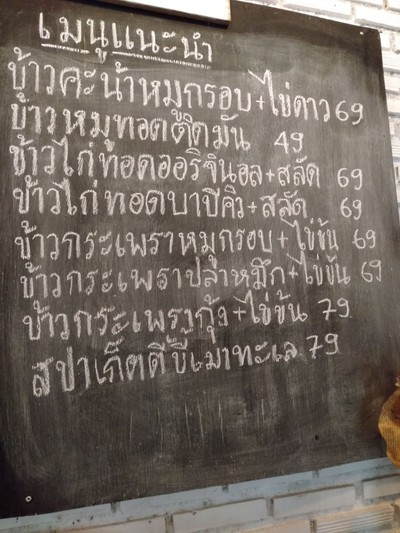 เมนูแนะนำ
ข้าวคะน้าหมูกรอบ+ไข่ดาว 69
ข้าวหมูทอดติดมัน 49
ข้าวไก่ทอดออริจินอล+สลัด 69
ข้าวไก่ทอดบาบีคิว+สลัด 69
ข้าวกระเพราหมูกรอบ+ไข่ข้น 69
ข้าวกระเพราปลาหมึก+ไข่ข้น 69
ข้าวกระเพรากุ้ง+ไข่ข้น 79
สปาเก็ตตีขี้เมาทะเล 79